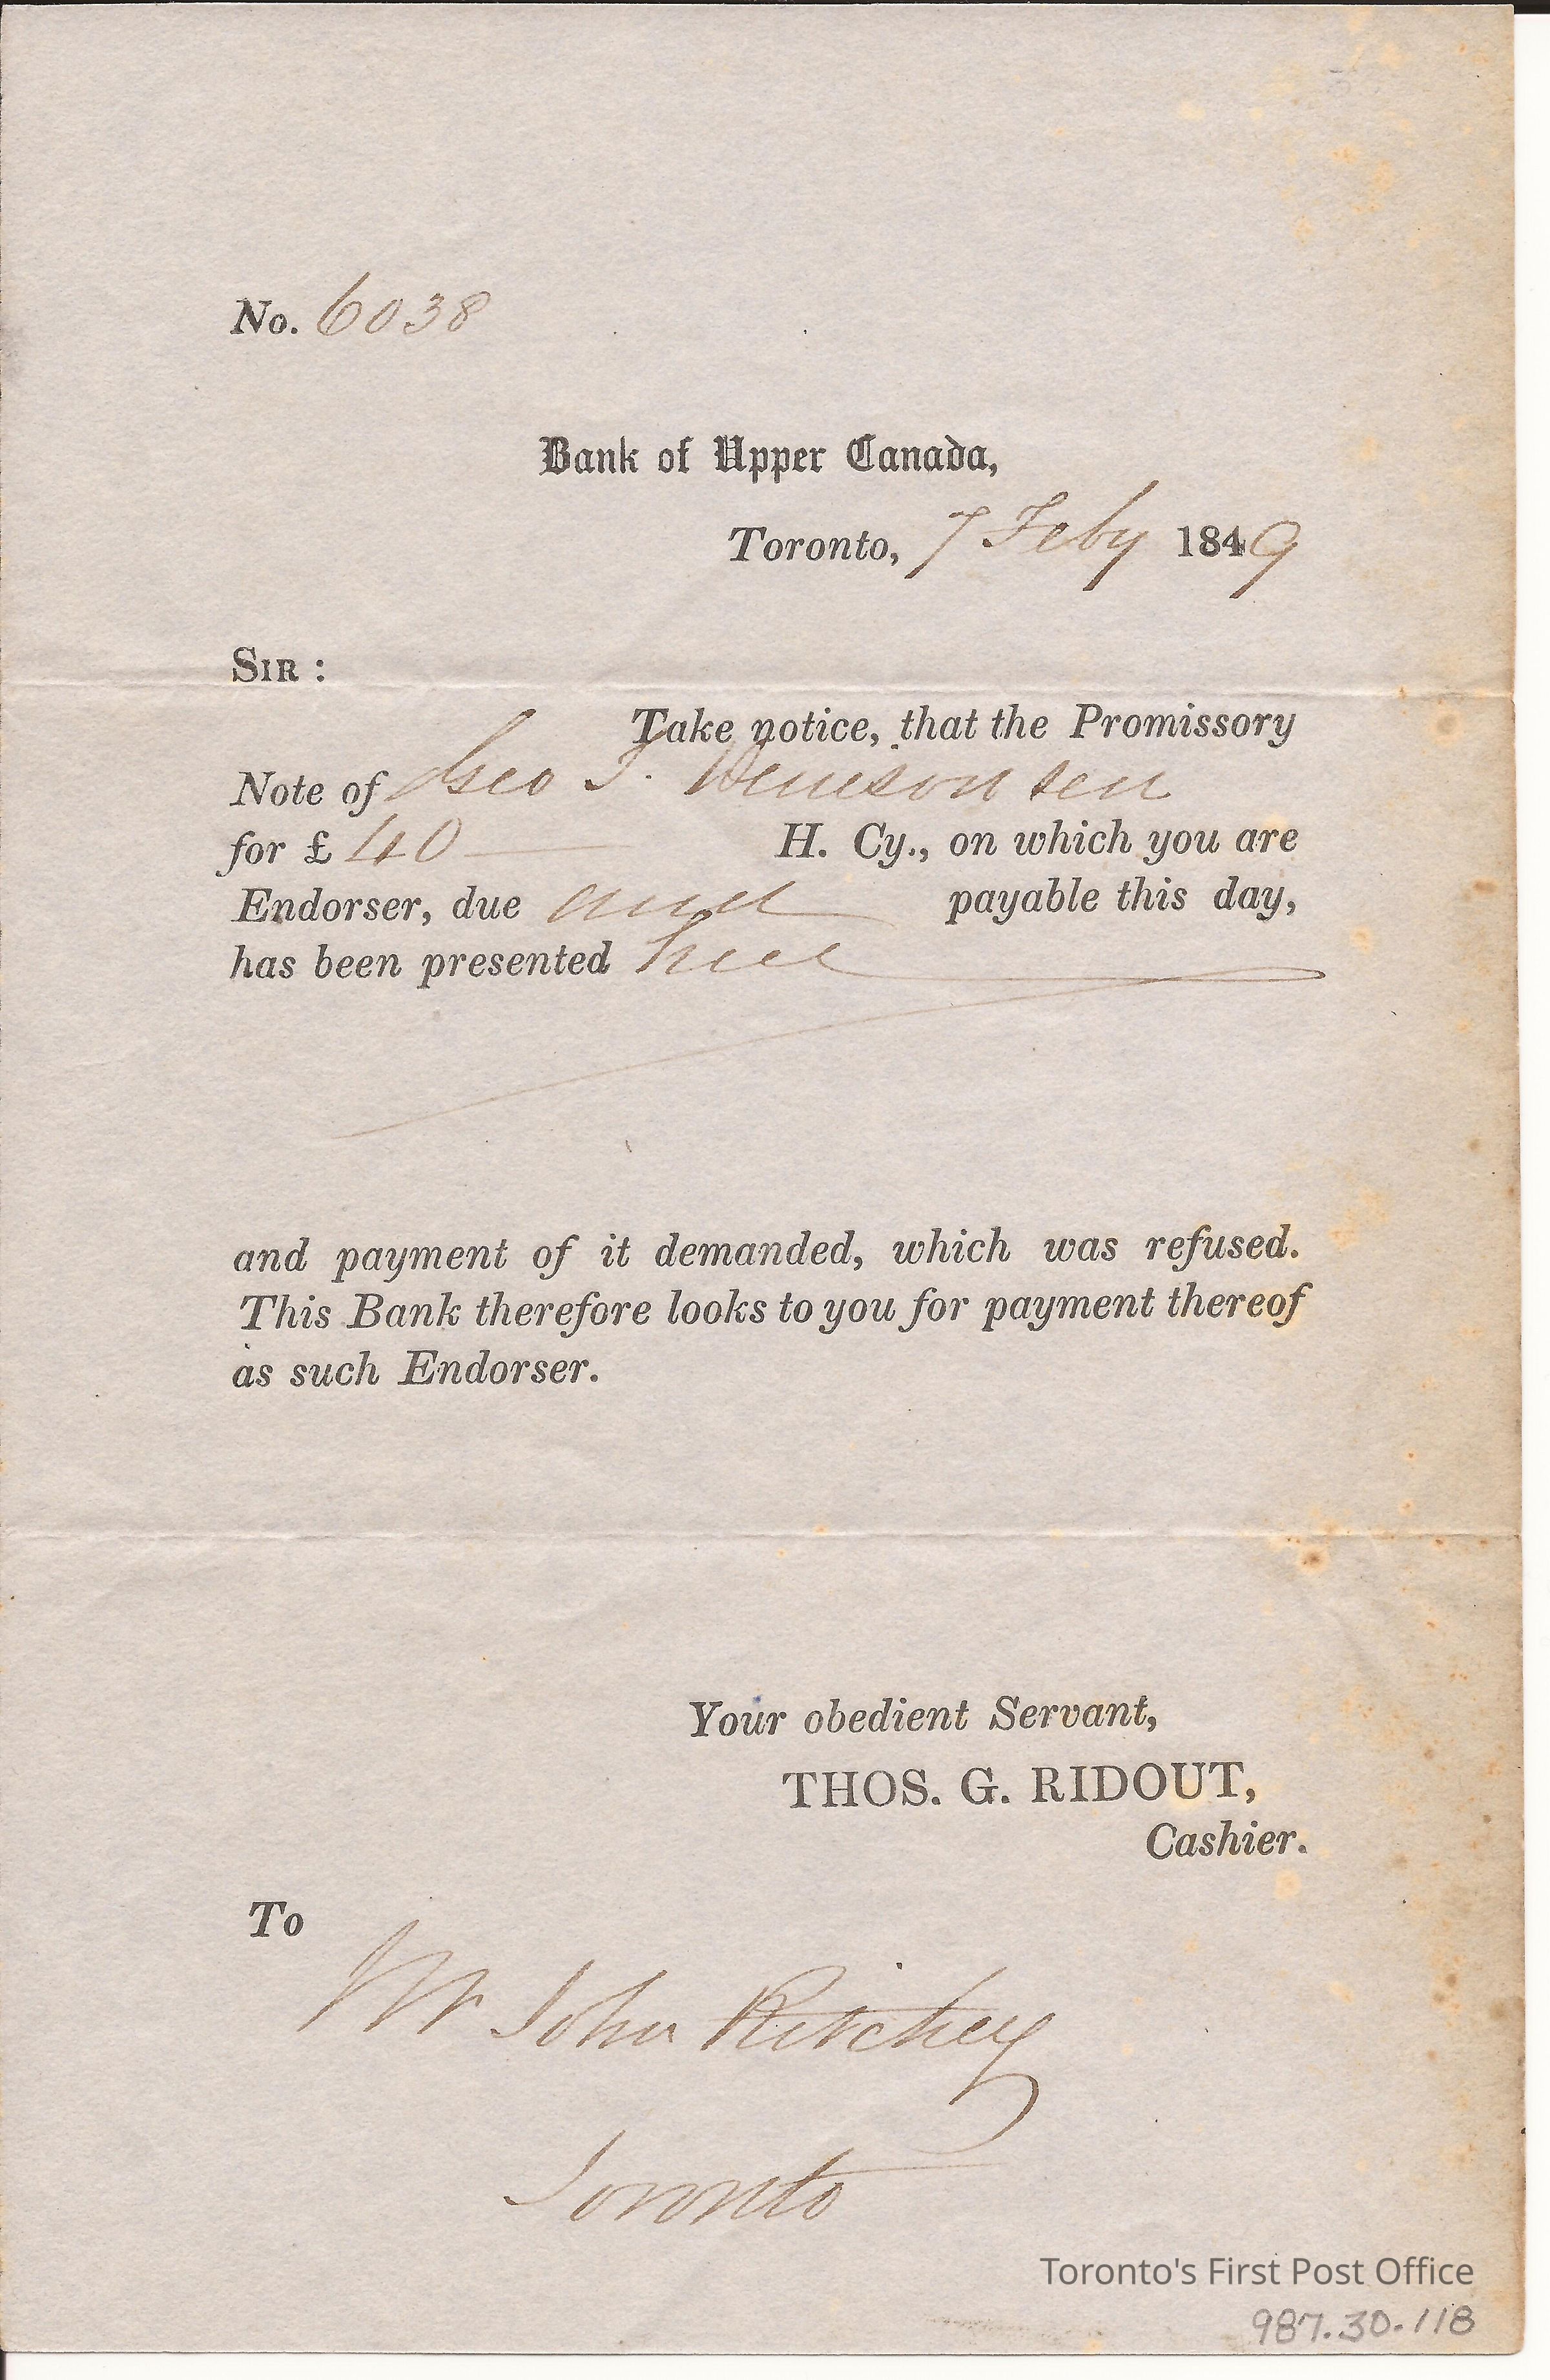 No. 6038
Bank of Upper Canada,
Toronto, 7 Feby 1849
SIR :
Take notice, that the Promissory
Note of Geo T. Denison sen
for £ 40 H. Cy., on which you are
Endorser, due and payable this day,
has been presented here
and payment of it demanded, which was refused.
This Bank therefore looks to you for payment thereof
as such Endorser.
Your obedient Servant,
THOS. G. RIDOUT,
Cashier.
To
Mr John Ritchey
Toronto
Toronto's First Post Office
987.30.118